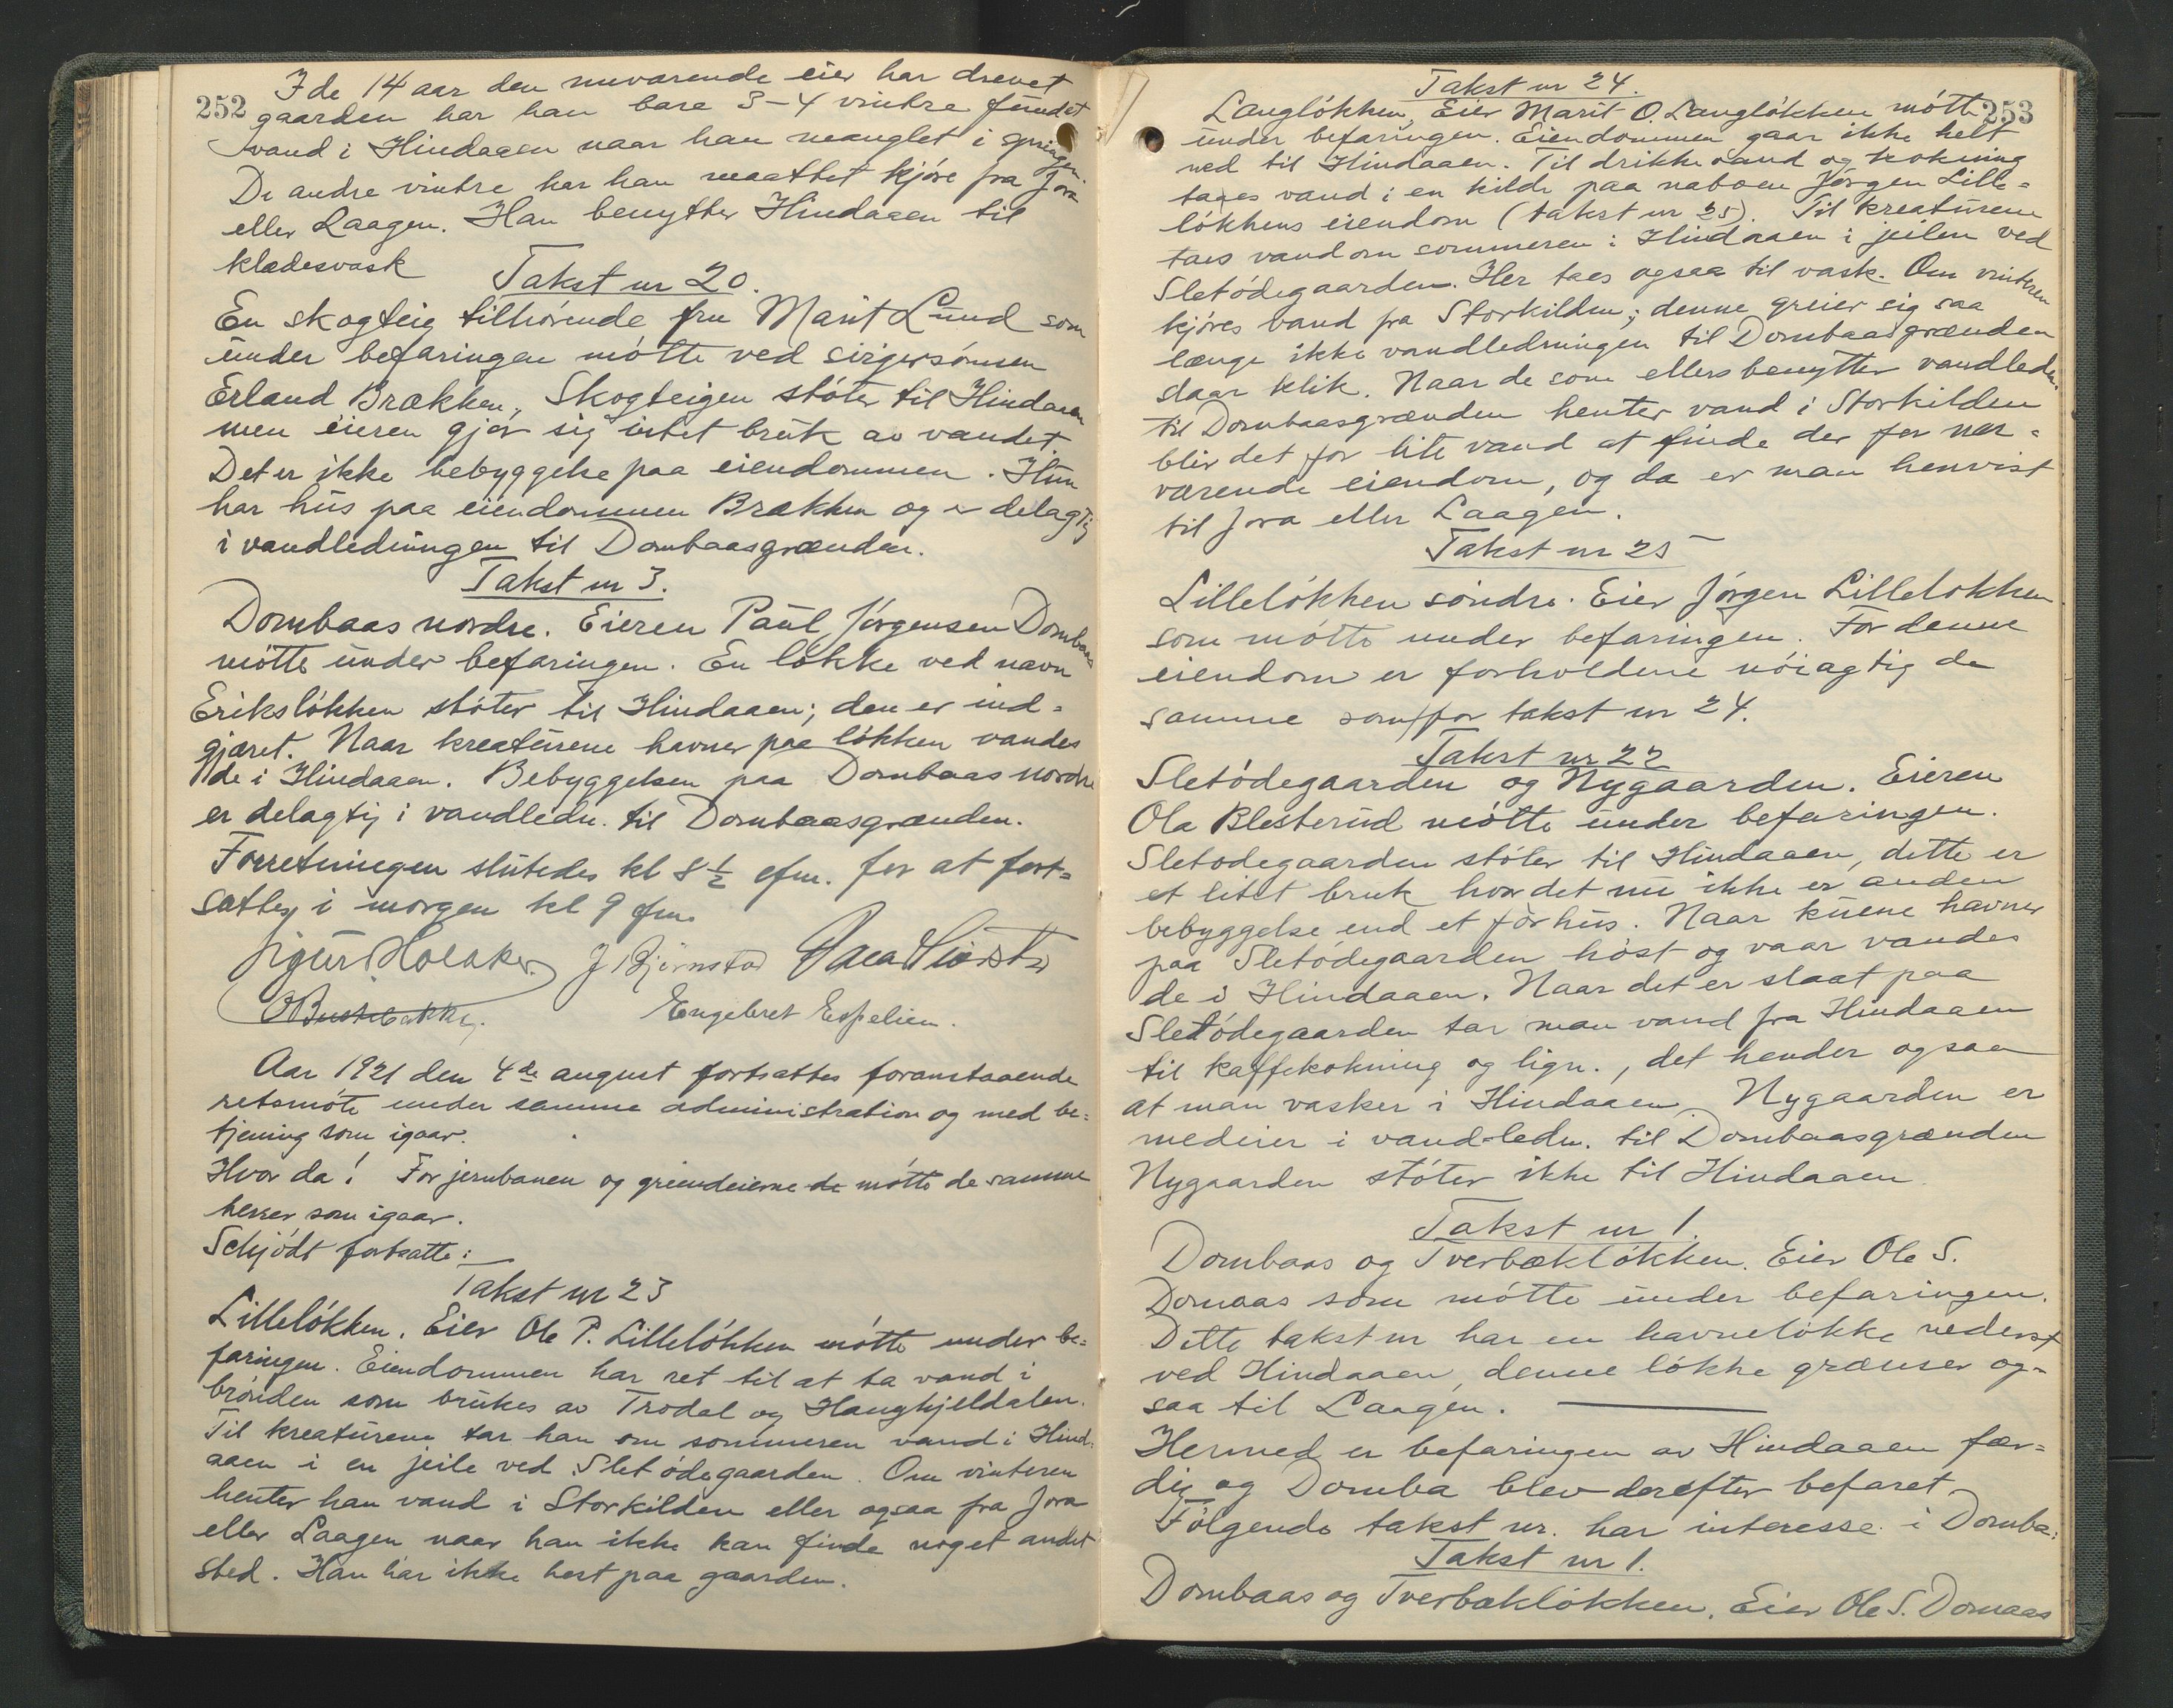 252
I de 14 aar den nuværende eier har drevet
gaarden har han bare 3-4 vintre fundet
vand i Hindaaen naar han manglet i springen.
De andre vintre har han maattet kjøre fra Jora
eller Laagen. Han benytter Hindaaen til
klædesvask
Takst nr 20.
En skogteig tilhørende fru Marit Lund som
under befaringen møtte ved svigersønnen
Erland Brækken, Skogteigen støter til Hindaaen
men eieren gjør sig intet bruk av vandet.
Det er ikke bebyggelse paa eiendommen. Hun
har hus paa eiendommen Brækken og er delagtig
i vandledningen til Dombaasgrænden.
Takst nr 3.
Dombaas nordre. Eieren Paul Jørgensen Dombaas
møtte under befaringen. En løkke ved navn
Eriksløkken støter til Hindaaen; den er ind-
gjæret. Naar kreaturene havner paa løkken vandes
de i Hindaaen. Bebyggelsen paa Dombaas nordre
er delagtig i vandledn. til Dombaasgrænden.
Forretningen sluttedes kl 8 1/2 efm. for at fort-
sættes i morgen kl 9 fm.
J Bjørnstad
Engebret Espelien.
Aar 1921 den 4de august fortsattes foranstaaende
retsmøte under samme administration og med be-
tjening som igaar.
Hvor da! For jernbanen og grundeierne de møtte de samme
herrer som igaar.
Schjødt fortsatte:
Takst nr 23
Lilleløkken. Eier Ole P. Lilleløkken møtte under be-
faringen. Eiendommen har ret til at ta vand i
brønden som brukes av Trodal og Haugkjeldalen.
Til kreaturene tar han om sommeren vand i Hind-
aaen i en jeile ved Sletødegaarden. Om vinteren
henter han vand i Storkilden eller ogsaa fra Jora
eller Laagen naar han ikke kan finde noget andet
sted. Han har ikke hest paa gaarden.
253
Takst nr 24.
Langløkken, Eier Marit O. Langløkken møtte
under befaringen. Eiendommen gaar ikke helt
ned til Hindaaen. Til drikkevand og kokning
taes vand i en kilde paa naboen Jørgen Lille-
løkkens eiendom (takst nr 25). Til kreaturene
taes vand om sommeren i Hindaaen i jeilen ved
Sletødegaarden. Her taes ogsaa til vask. Om vinteren
kjøres vand fra Storkilden; denne greier sig saa
længe ikke vandledningen til Dombaasgrænden
slaar klik. Naar de som ellers benytter vandledn.
til Dombaasgrænden henter vand i Storkilden
blir det for lite vand at finde der for nær-
værende eiendom, og da er man henvist
til Jora eller Laagen.
Takst nr 25
Lilleløkken søndre. Eier Jørgen Lilleløkken
som møtte under befaringen. For denne
eiendom er forholdene nøiagtig de
samme som for takst nr 24.
Takst nr 22
Sletødegaarden og Nygaarden. Eieren
Ola Blesterud møtte under befaringen.
Sletødegaarden støter til Hindaaen, dette er
et litet bruk hvor det nu ikke er anden
bebyggelse end et førhus. Naar kuene havner
paa Sletødegaarden høst og vaar vandes
de i Hindaaen. Naar det er slaat paa
Sletødegaarden tar man vand fra Hindaaen
til kaffekokning og lign., det hender ogsaa
at man vasker i Hindaaen. Nygaarden er
medeier i vand-ledn. til Dombaasgrænden
Nygaarden støter ikke til Hindaaen.
Takst nr 1.
Dombaas og Tverbækløkken. Eier Ole S.
Domaas som møtte under befaringen.
Dette takstnr har en havneløkke nederst
ved Hindaaen, denne løkke grænser og-
saa til Laagen.
Hermed er befaringen av Hindaaen fær-
dig og Domba blev derefter befaret.
Følgende takst nr. har interesse i Domba:
Takst nr 1.
Dombaas og Tverbækløkken. Eier Ole S. Domaas